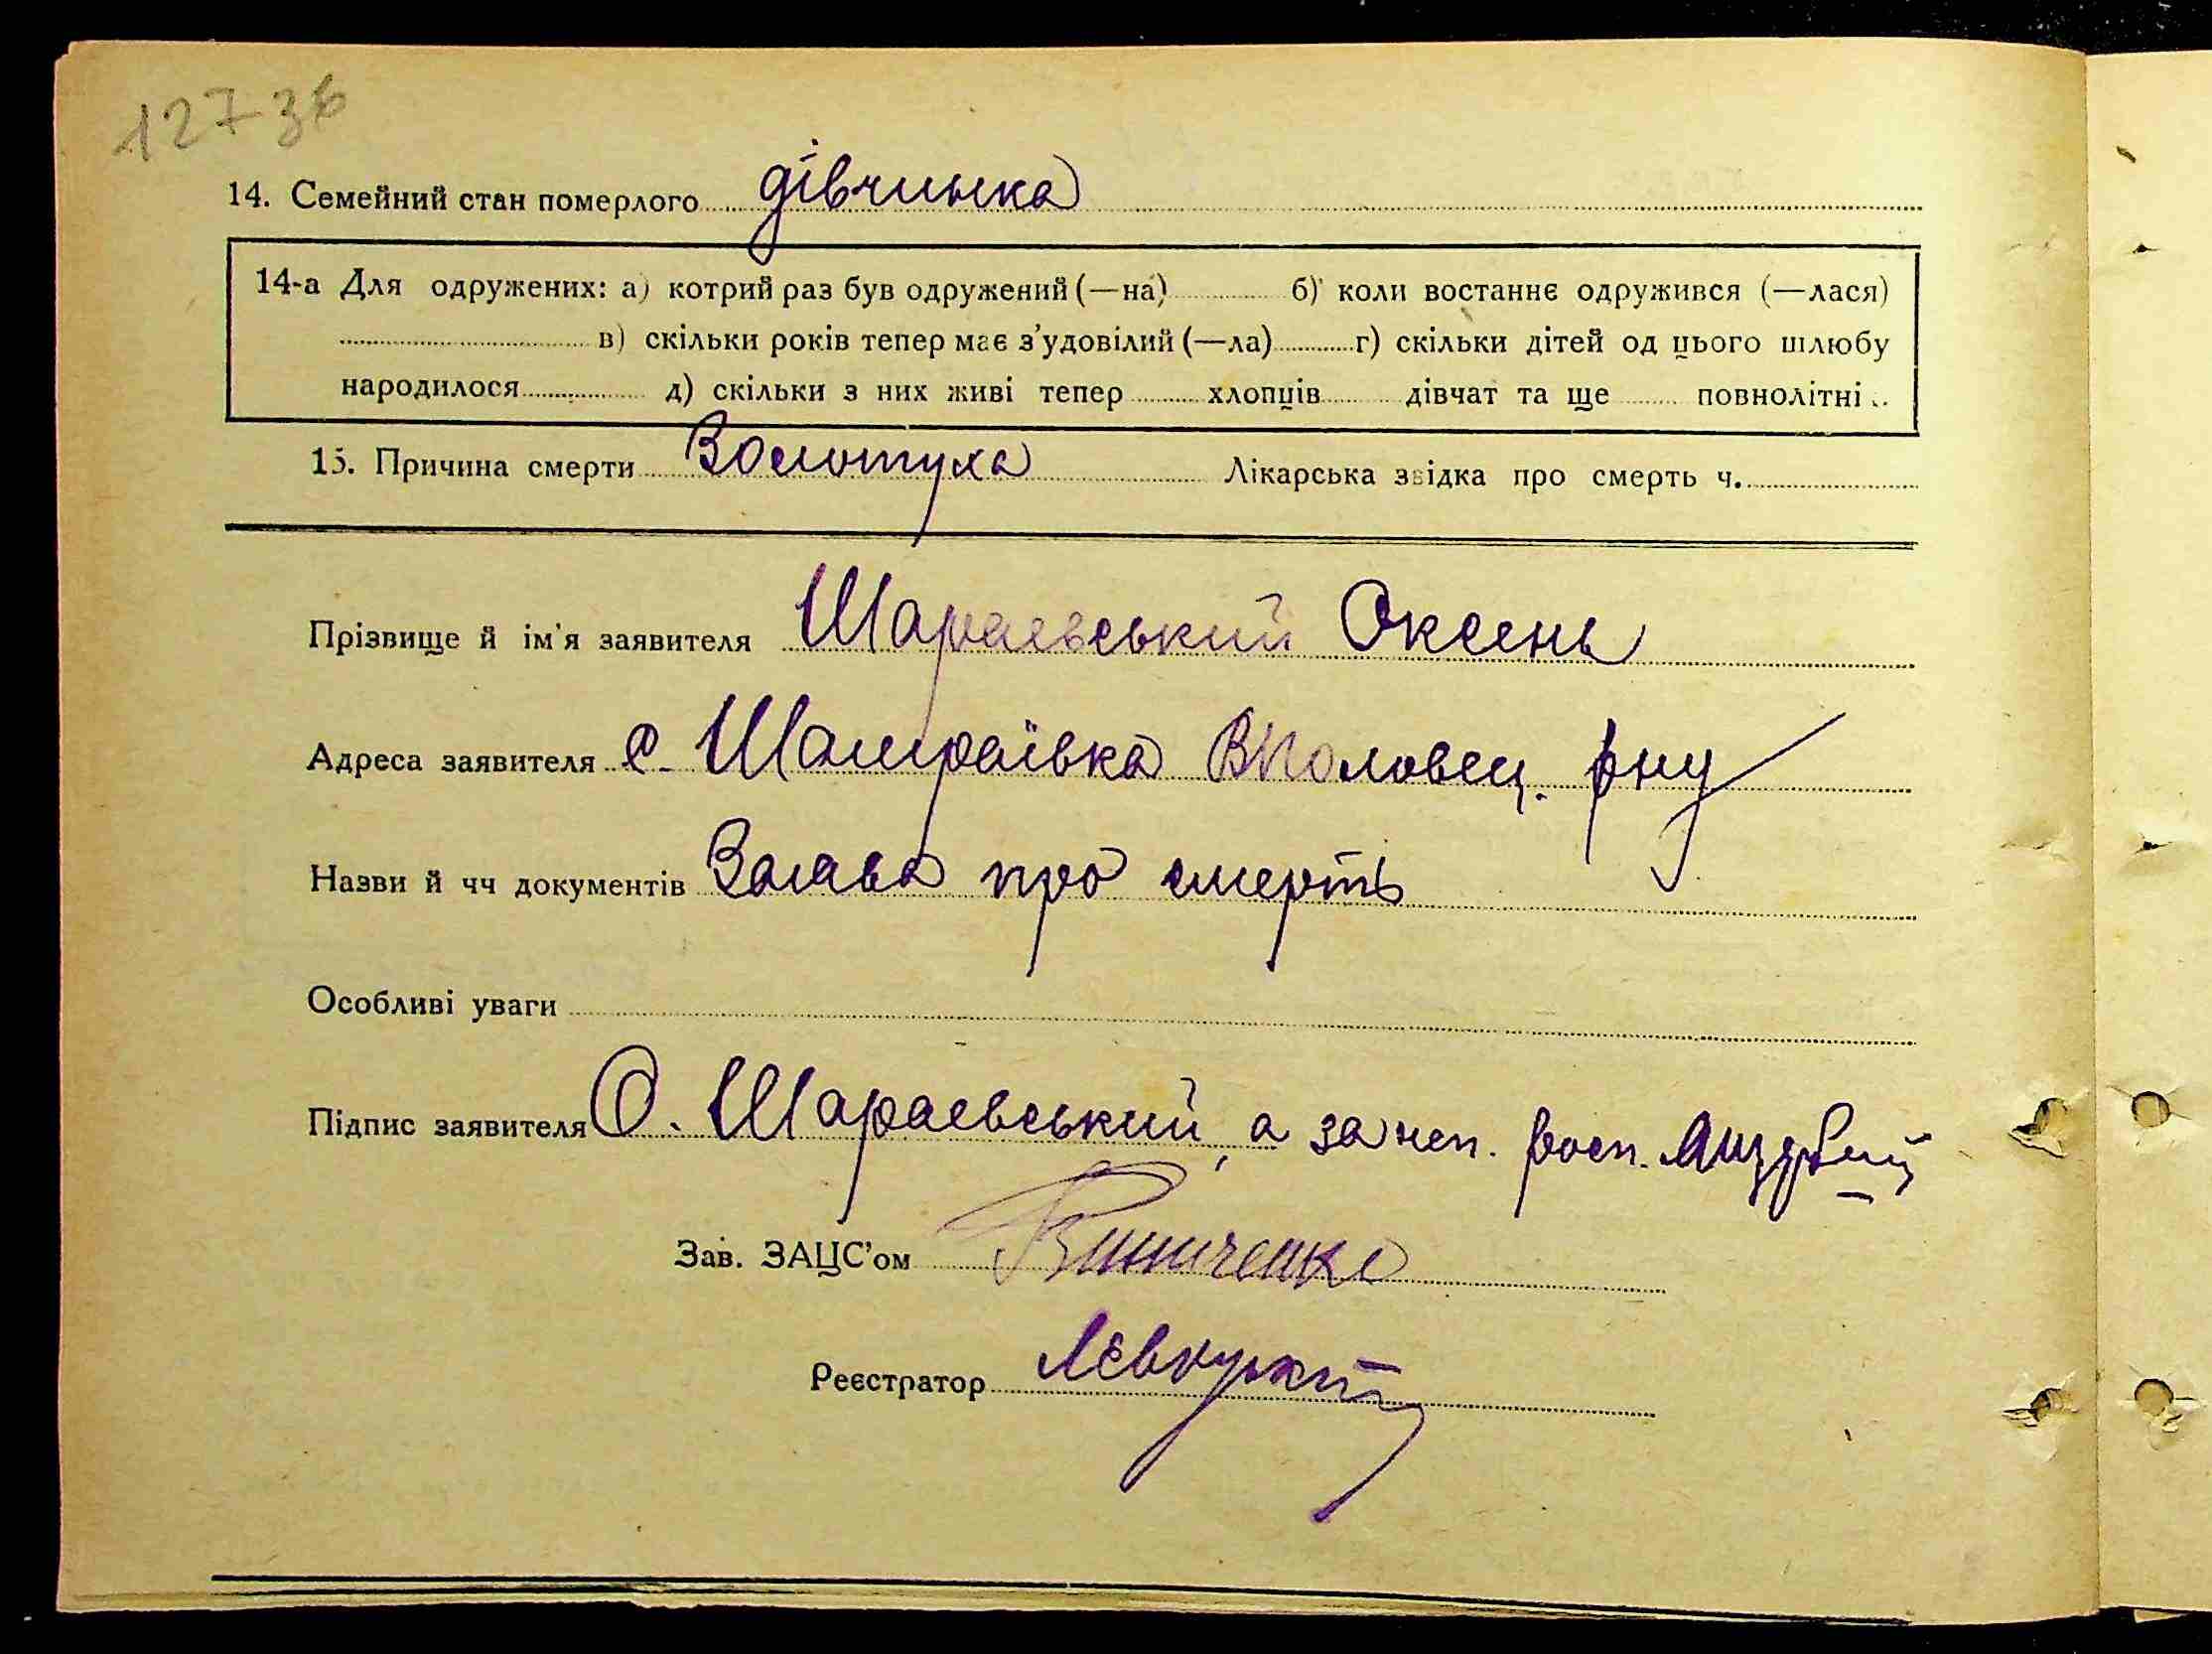 12736
14. Семейний стан померлого дівчинка
14-а Для одружених: а) котрий раз був одружений (—на) б) коли востаннє одружився (—лася)
в) скільки років тепер має з'удовілий (—ла) г) скільки дітей од цього шлюбу
народилося д) скільки з них живі тепер хлопців дівчат та ще повнолітні
15. Причина смерти Золотуха Лікарська звідка про смерть ч.
Прізвище й ім'я заявителя Шараевський Оксень
Адреса заявителя с. Шамраївка ВПоловец. рну
Назви й чч документів Заява про смерть
Особливі уваги
Підпис заявителя О. Шараевський, а за неп. росп.
Зав. ЗАЦС'ом Винниченко
Реєстратор